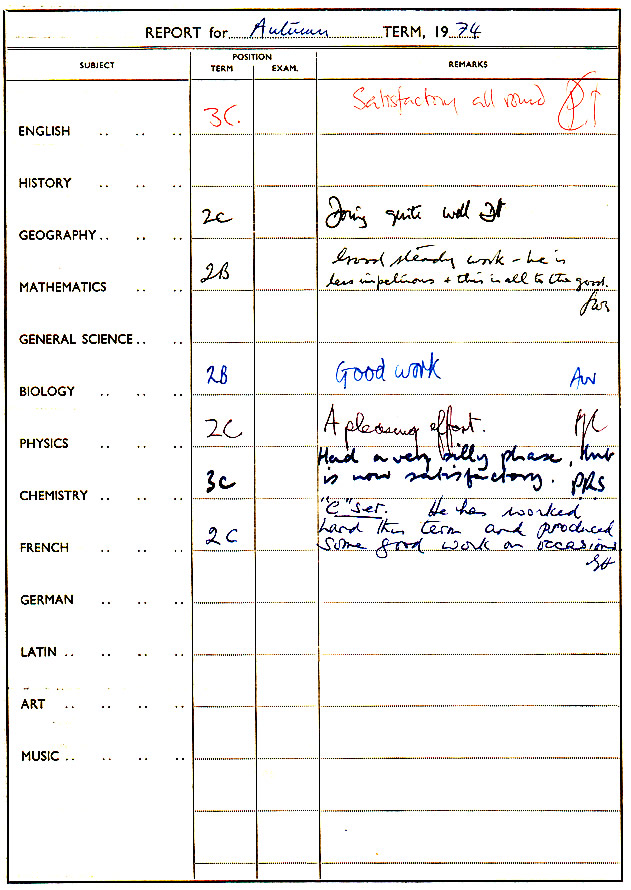 REPORT for Autumn TERM, 19 74
SUBJECT
POSITION
TERM EXAM.
REMARKS
ENGLISH .. .. .. 3C. Satisfactory all round
HISTORY .. .. ..
GEOGRAPHY .. .. .. 2C Doing quite well
MATHEMATICS .. .. 2B Good steady work - he is
less impetuous + this is all to the good.
GENERAL SCIENCE .. ..
BIOLOGY .. .. .. 2B Good work AW
PHYSICS .. .. .. 2C A pleasing effort.
Had a very silly phase, but
CHEMISTRY .. .. .. 3C is now satisfactory. PRS
"C" set. He has worked
FRENCH .. .. .. 2C hard this term and produced
some good work on occasions
GERMAN .. .. ..
LATIN .. .. ..
ART .. .. ..
MUSIC .. .. ..